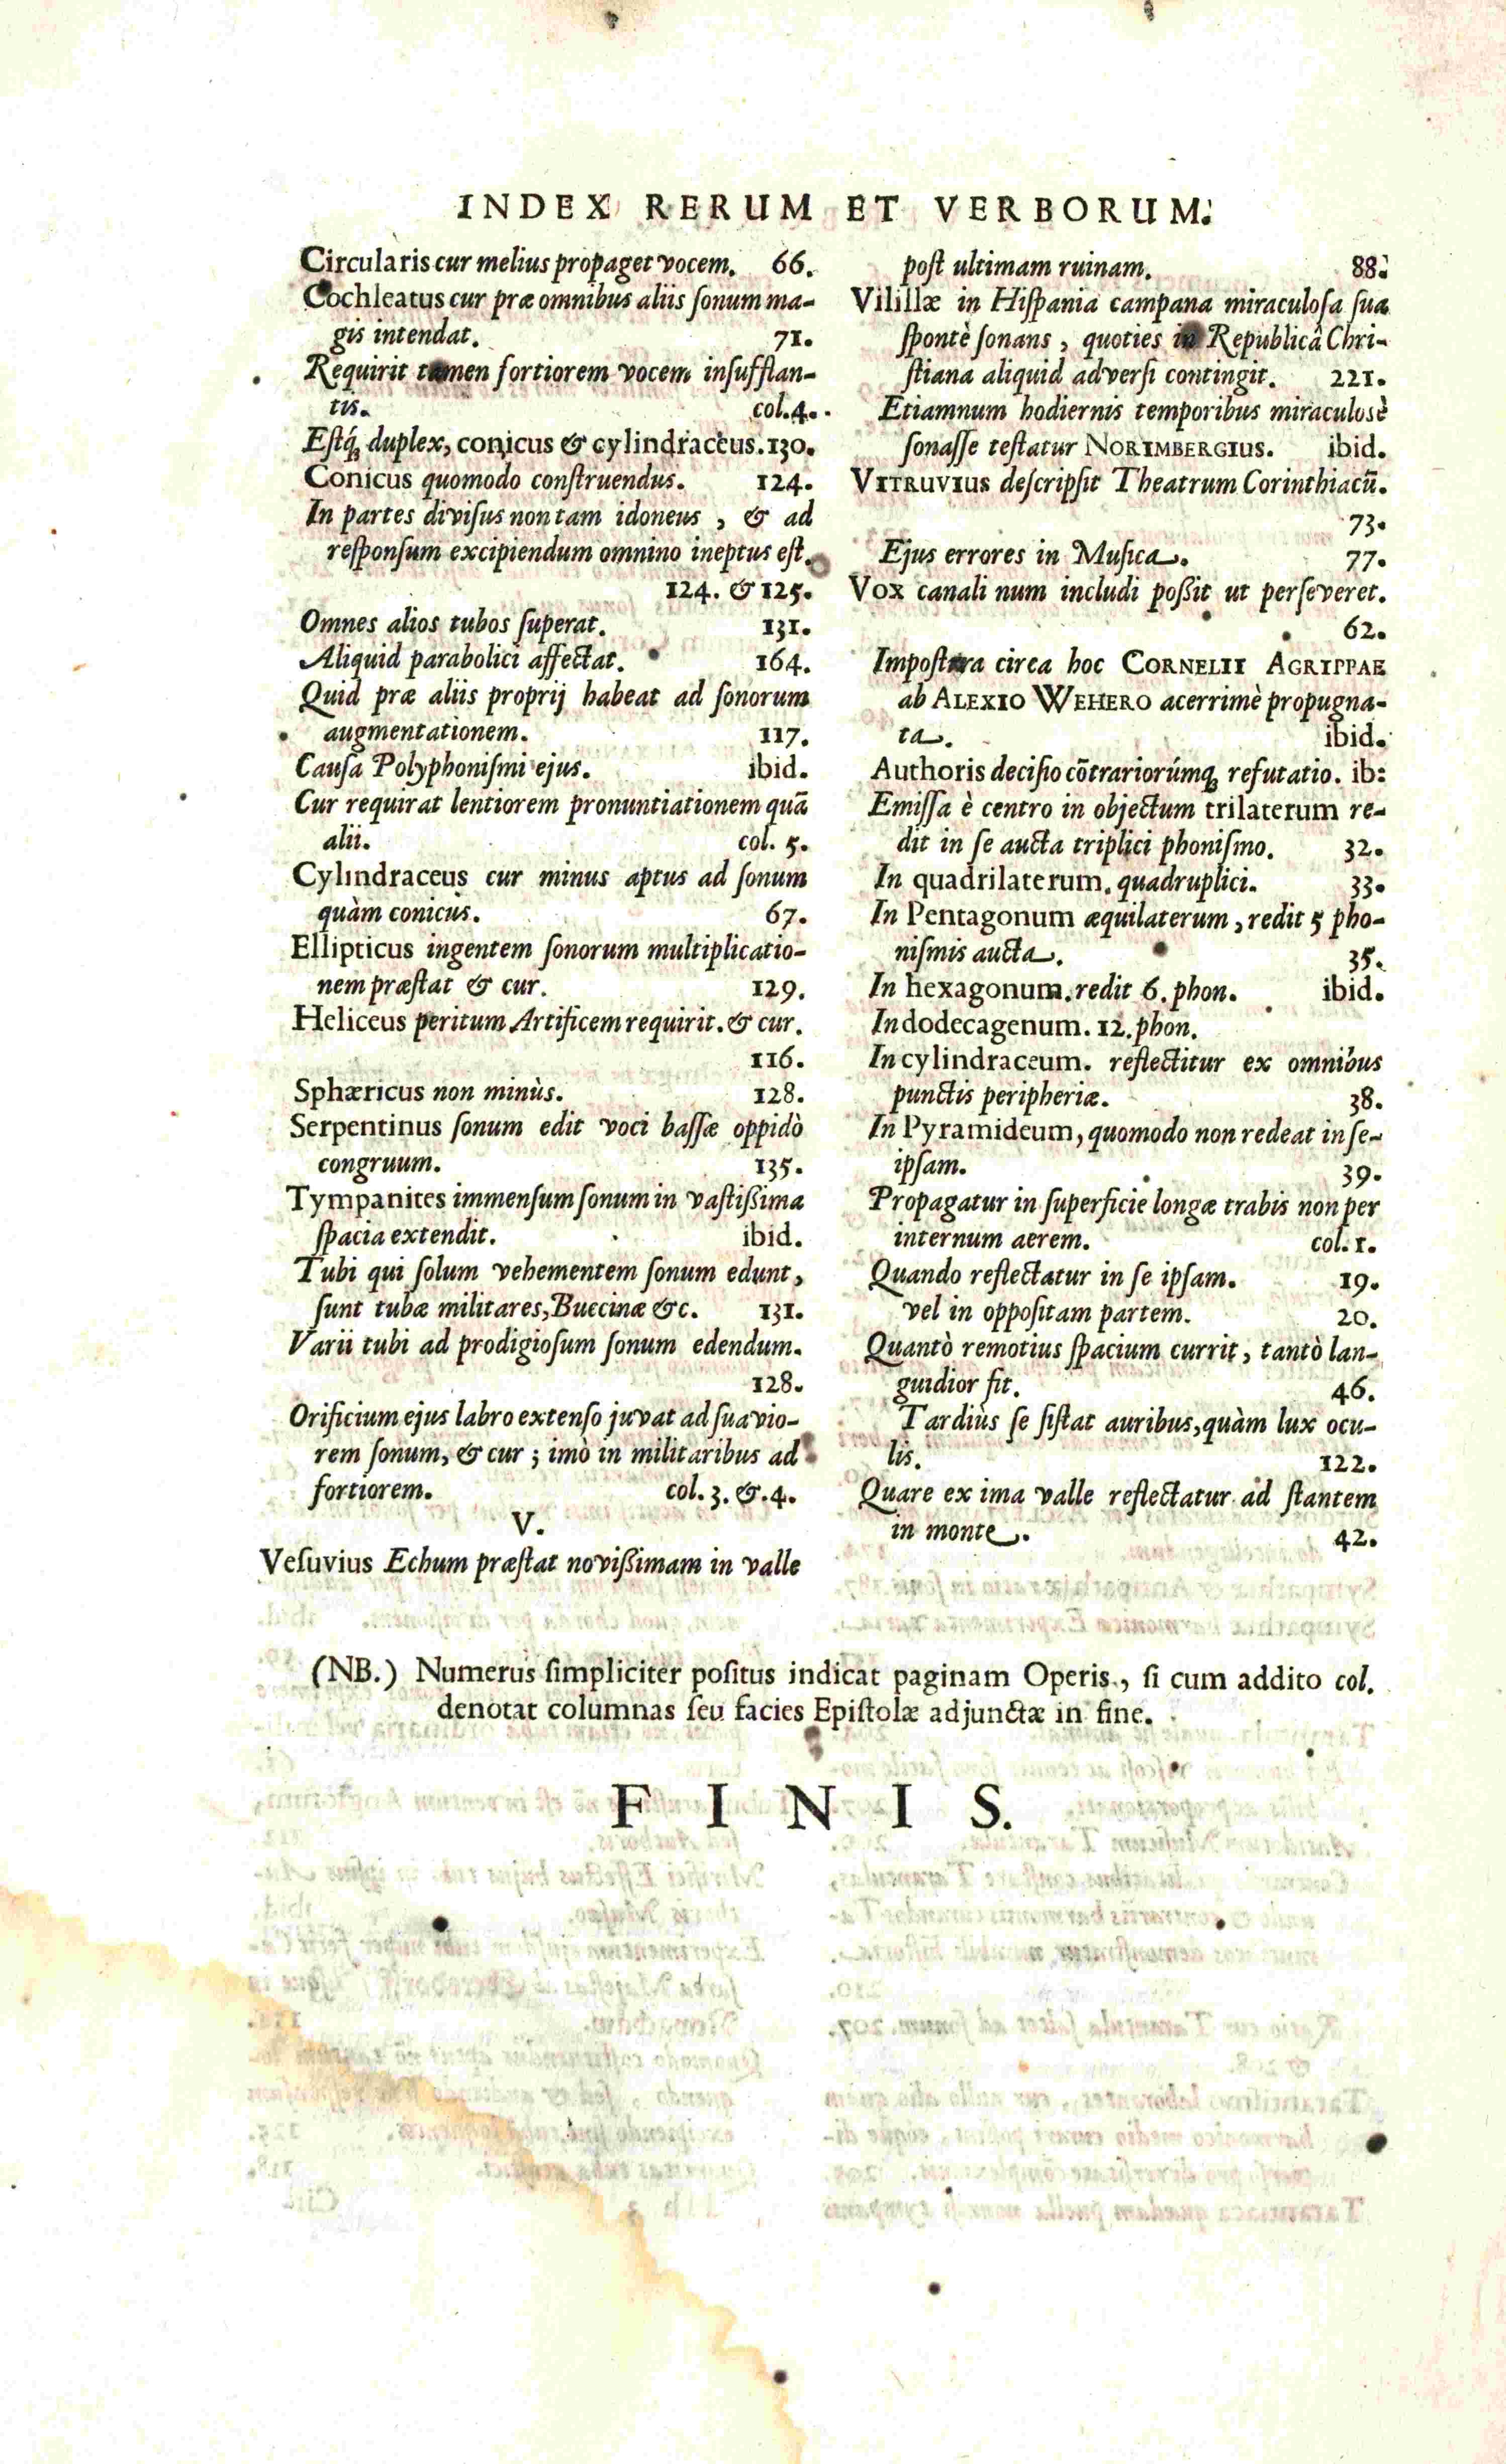 INDEX RERUM ET VERBORUM.
Circularis cur melius propaget vocem. 66.
Cochleatus cur præ omnibus aliis ſonum ma-
gis intendat. 71.
Requirit tamen fortiorem vocem inſufflan-
tis. col. 4.
Eſtq́; duplex, conicus & cylindraceus. 130.
Conicus quomodo conſtruendus. 124.
In partes diviſus non tam idoneus, & ad
reſponſum excipiendum omnino ineptus eſt.
124. & 125.
Omnes alios tubos ſuperat. 131.
Aliquid parabolici affectat. 164.
Quid præ aliis proprij habeat ad ſonorum
augmentationem. 117.
Cauſa Polyphoniſmi ejus. ibid.
Cur requirat lentiorem pronuntiationem quã
alii. col. 5.
Cylindraceus cur minus aptus ad ſonum
quàm conicus. 67.
Ellipticus ingentem ſonorum multiplicatio-
nem præſtat & cur. 129.
Heliceus peritum Artificem requirit. & cur.
116.
Sphæricus non minùs. 128.
Serpentinus ſonum edit voci baſſæ oppidò
congruum. 135.
Tympanites immenſum ſonum in vaſtißima
ſpacia extendit. ibid.
Tubi qui ſolum vehementem ſonum edunt,
ſunt tubæ militares, Buccinæ &c. 131.
Varii tubi ad prodigioſum ſonum edendum.
128.
Orificium ejus labro extenſo juvat ad ſuavio-
rem ſonum, & cur; imò in militaribus ad
fortiorem. col. 3. &. 4.
V.
Veſuvius Echum præſtat novißimam in valle
poſt ultimam ruinam. 88.
Vilillæ in Hiſpania campana miraculoſa ſua
ſpontè ſonans, quoties in Republicâ Chri-
ſtiana aliquid adverſi contingit. 221.
Etiamnum hodiernis temporibus miraculosè
ſonaſſe teſtatur NORIMBERGIUS. ibid.
VITRUVIUS deſcripſit Theatrum Corinthiacũ.
73.
Ejus errores in Muſica. 77.
Vox canali num includi poßit ut perſeveret.
62.
Impoſtura circa hoc CORNELII AGRIPPAE
ab ALEXIO WEHERO acerrimè propugna-
ta. ibid.
Authoris deciſio cõtrariorúmq; refutatio. ib:
Emiſſa è centro in objectum trilaterum re-
dit in ſe aucta triplici phoniſmo. 32.
In quadrilaterum. quadruplici. 33.
In Pentagonum æquilaterum, redit 5 pho-
niſmis aucta. 35.
In hexagonum. redit 6. phon. ibid.
In dodecagenum. 12. phon.
In cylindraceum. reflectitur ex omnibus
punctis peripheriæ. 38.
In Pyramideum, quomodo non redeat in ſe-
ipſam. 39.
Propagatur in ſuperficie longæ trabis non per
internum aerem. col. 1.
Quando reflectatur in ſe ipſam. 19.
vel in oppoſitam partem. 20.
Quantò remotius ſpacium currit, tantò lan-
guidior fit. 46.
Tardiùs ſe ſiſtat auribus, quàm lux ocu-
lis. 122.
Quare ex ima valle reflectatur ad ſtantem
in monte. 42.
(NB.) Numerus ſimpliciter poſitus indicat paginam Operis, ſi cum addito col.
denotat columnas ſeu facies Epiſtolæ adjunctæ in fine.
FINIS.